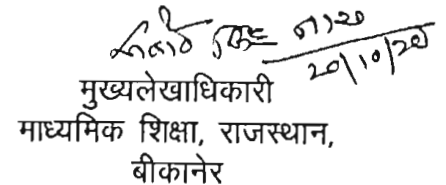 20/10/20
मुख्यलेखाधिकारी
माध्यमिक शिक्षा, राजस्थान,
बीकानेर